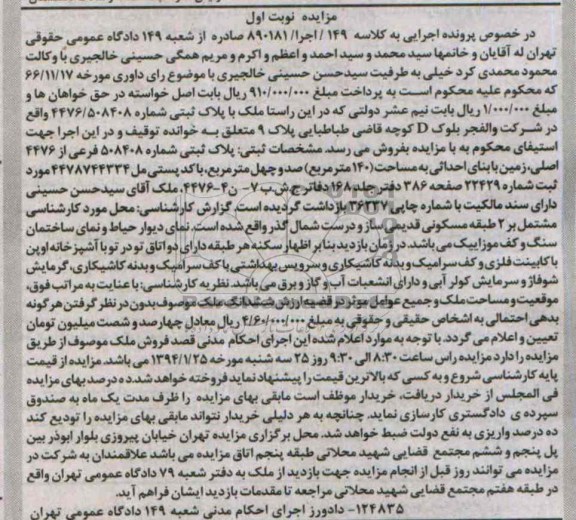 مزایده نوبت اول
در خصوص پرونده اجرایی به کلاسه ۱۴۹ /اجرا/ ۸۹۰۱۸۱ صادره از شعبه ۱۴۹ دادگاه عمومی حقوقی
تهران له آقایان و خانمها سید محمد و سید احمد و اعظم و اکرم و مریم همگی حسینی خالجیری با وکالت
محمود محمدی کرد خیلی به طرفیت سیدحسن حسینی خالجیری با موضوع رای داوری مورخه ۶۶/۱۱/۱۷
که محکوم علیه محکوم است به پرداخت مبلغ ۹۱۰/۰۰۰/۰۰۰ ریال بابت اصل خواسته در حق خواهان ها و
مبلغ ۱/۰۰۰/۰۰۰ ریال بابت نیم عشر دولتی که در این راستا ملک با پلاک ثبتی شماره ۴۴۷۶/۵۰۸۴۰۸ واقع
در شرکت والفجر بلوک D کوچه قاضی طباطبایی پلاک ۹ متعلق به خوانده توقیف و در این اجرا جهت
استیفای محکوم به با مزایده بفروش می رسد. مشخصات ثبتی: پلاک ثبتی شماره ۵۰۸۴۰۸ فرعی از ۴۴۷۶
اصلی، زمین با بنای احداثی به مساحت (۱۴۰ مترمربع) صدو چهل مترمربع، با کد پستی مل ۴۴۷۸۷۴۴۳۳۴ مورد
ثبت شماره ۲۲۴۲۹ صفحه ۳۸۶ دفتر جلد ۱۶۸ دفاتر ج ش ب ۷- ن۴-۴۴۷۶، ملک آقای سیدحسن حسینی
دارای سند مالکیت با شماره چاپی ۳۶۲۳۷ بازداشت گردیده است. گزارش کارشناسی: محل مورد کارشناسی
مشتمل بر ۲ طبقه مسکونی قدیمی ساز و درست شمال گذر واقع شده است. نمای دیوار حیاط و نمای ساختمان
سنگ و کف موزاییک می باشد. در زمان بازدید بنا بر اظهار سکنه هر طبقه دارای دو اتاق تو در تو با آشپزخانه اوپن
با کابینت فلزی و کف سرامیک و بدنه کاشیکاری و سرویس بهداشتی با کف سرامیک و بدنه کاشیکاری، گرمایش
شوفاژ و سرمایش کولر آبی و دارای انشعابات آب و گاز و برق می باشد. نظریه کارشناسی: با عنایت به مراتب فوق،
موقعیت و مساحت ملک و جمیع عوامل موثر در قضیه ارزش ششدانگ ملک موصوف بدون در نظر گرفتن هر گونه
بدهی احتمالی به اشخاص حقیقی و حقوقی به مبلغ ۴/۶۰۰/۰۰۰/۰۰۰ ریال معادل چهارصد و شصت میلیون تومان
تعیین و اعلام می گردد. با توجه به موارد اعلام شده این اجرای احکام مدنی قصد فروش ملک موصوف از طریق
مزایده را دارد مزایده راس ساعت ۸:۳۰ الی ۹:۳۰ روز ۲۵ سه شنبه مورخه ۱۳۹۴/۱/۲۵ می باشد. مزایده از قیمت
پایه کارشناسی شروع و به کسی که بالاترین قیمت را پیشنهاد نماید فروخته خواهد شد. ده درصد بهای مزایده
فی المجلس از خریدار دریافت، خریدار موظف است مابقی بهای مزایده را ظرف مدت یک ماه به صندوق
سپرده ی دادگستری کارسازی نماید. چنانچه به هر دلیلی خریدار نتواند مابقی بهای مزایده را تودیع کند
ده درصد واریزی به نفع دولت ضبط خواهد شد. محل برگزاری مزایده تهران خیابان پیروزی بلوار ابوذر بین
پل پنجم و ششم مجتمع قضایی شهید محلاتی طبقه پنجم اتاق مزایده می باشد علاقمندان به شرکت در
مزایده می توانند روز قبل از انجام مزایده جهت بازدید از ملک به دفتر شعبه ۷۹ دادگاه عمومی تهران واقع
در طبقه هفتم مجتمع قضایی شهید محلاتی مراجعه تا مقدمات بازدید ایشان فراهم آید.
۱۲۴۸۳۵- دادورز اجرای احکام مدنی شعبه ۱۴۹ دادگاه عمومی تهران